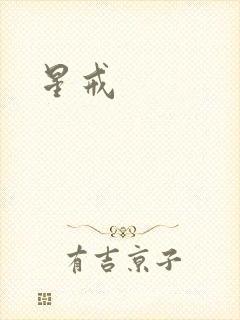 星戒
有吉京子